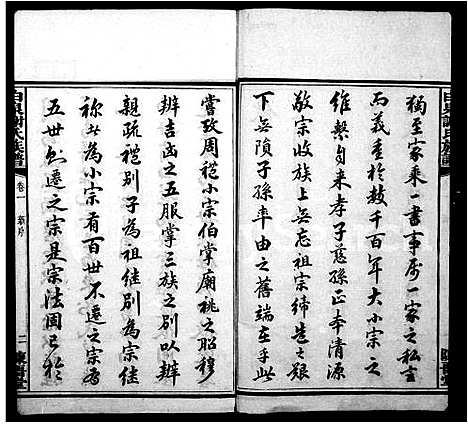 獨至家乘一書事屬一家之私言
而義垂於數千百年大小宗之
維繫自來孝子慈孫正本清源
敬宗收族上無忘祖宗締造之艱
下無隕子孫率由之舊端在乎此
嘗攷周禮小宗伯掌廟祧之昭穆
辨吉凶之五服掌三族之別以辨
親疏禮別子為祖繼別為宗繼
祢者為小宗有百世不遷之宗有
五世則遷之宗是宗法固已於
氏族譜
卷一
二